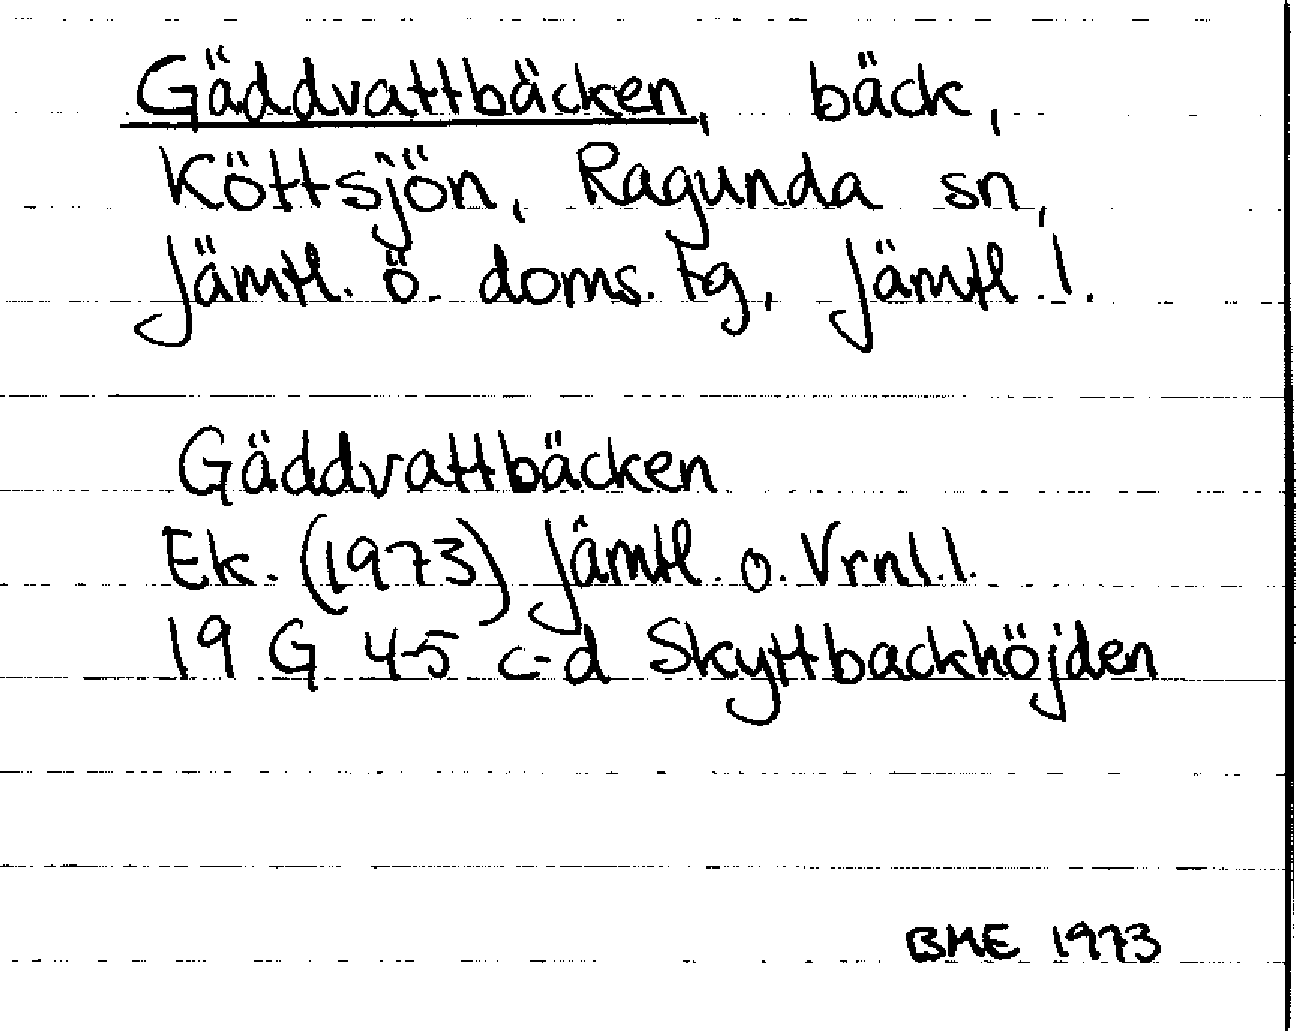 Gäddvattbäcken, bäck,
Köttsjön, Ragunda sn,
Jämtl. ö. doms. tg, Jämtl. l.
Gäddvattbäcken
Ek. (1973) Jämtl. o. Vrnl. l.
19 G 4-5 c-d Skyttbackhöjden
BME 1973